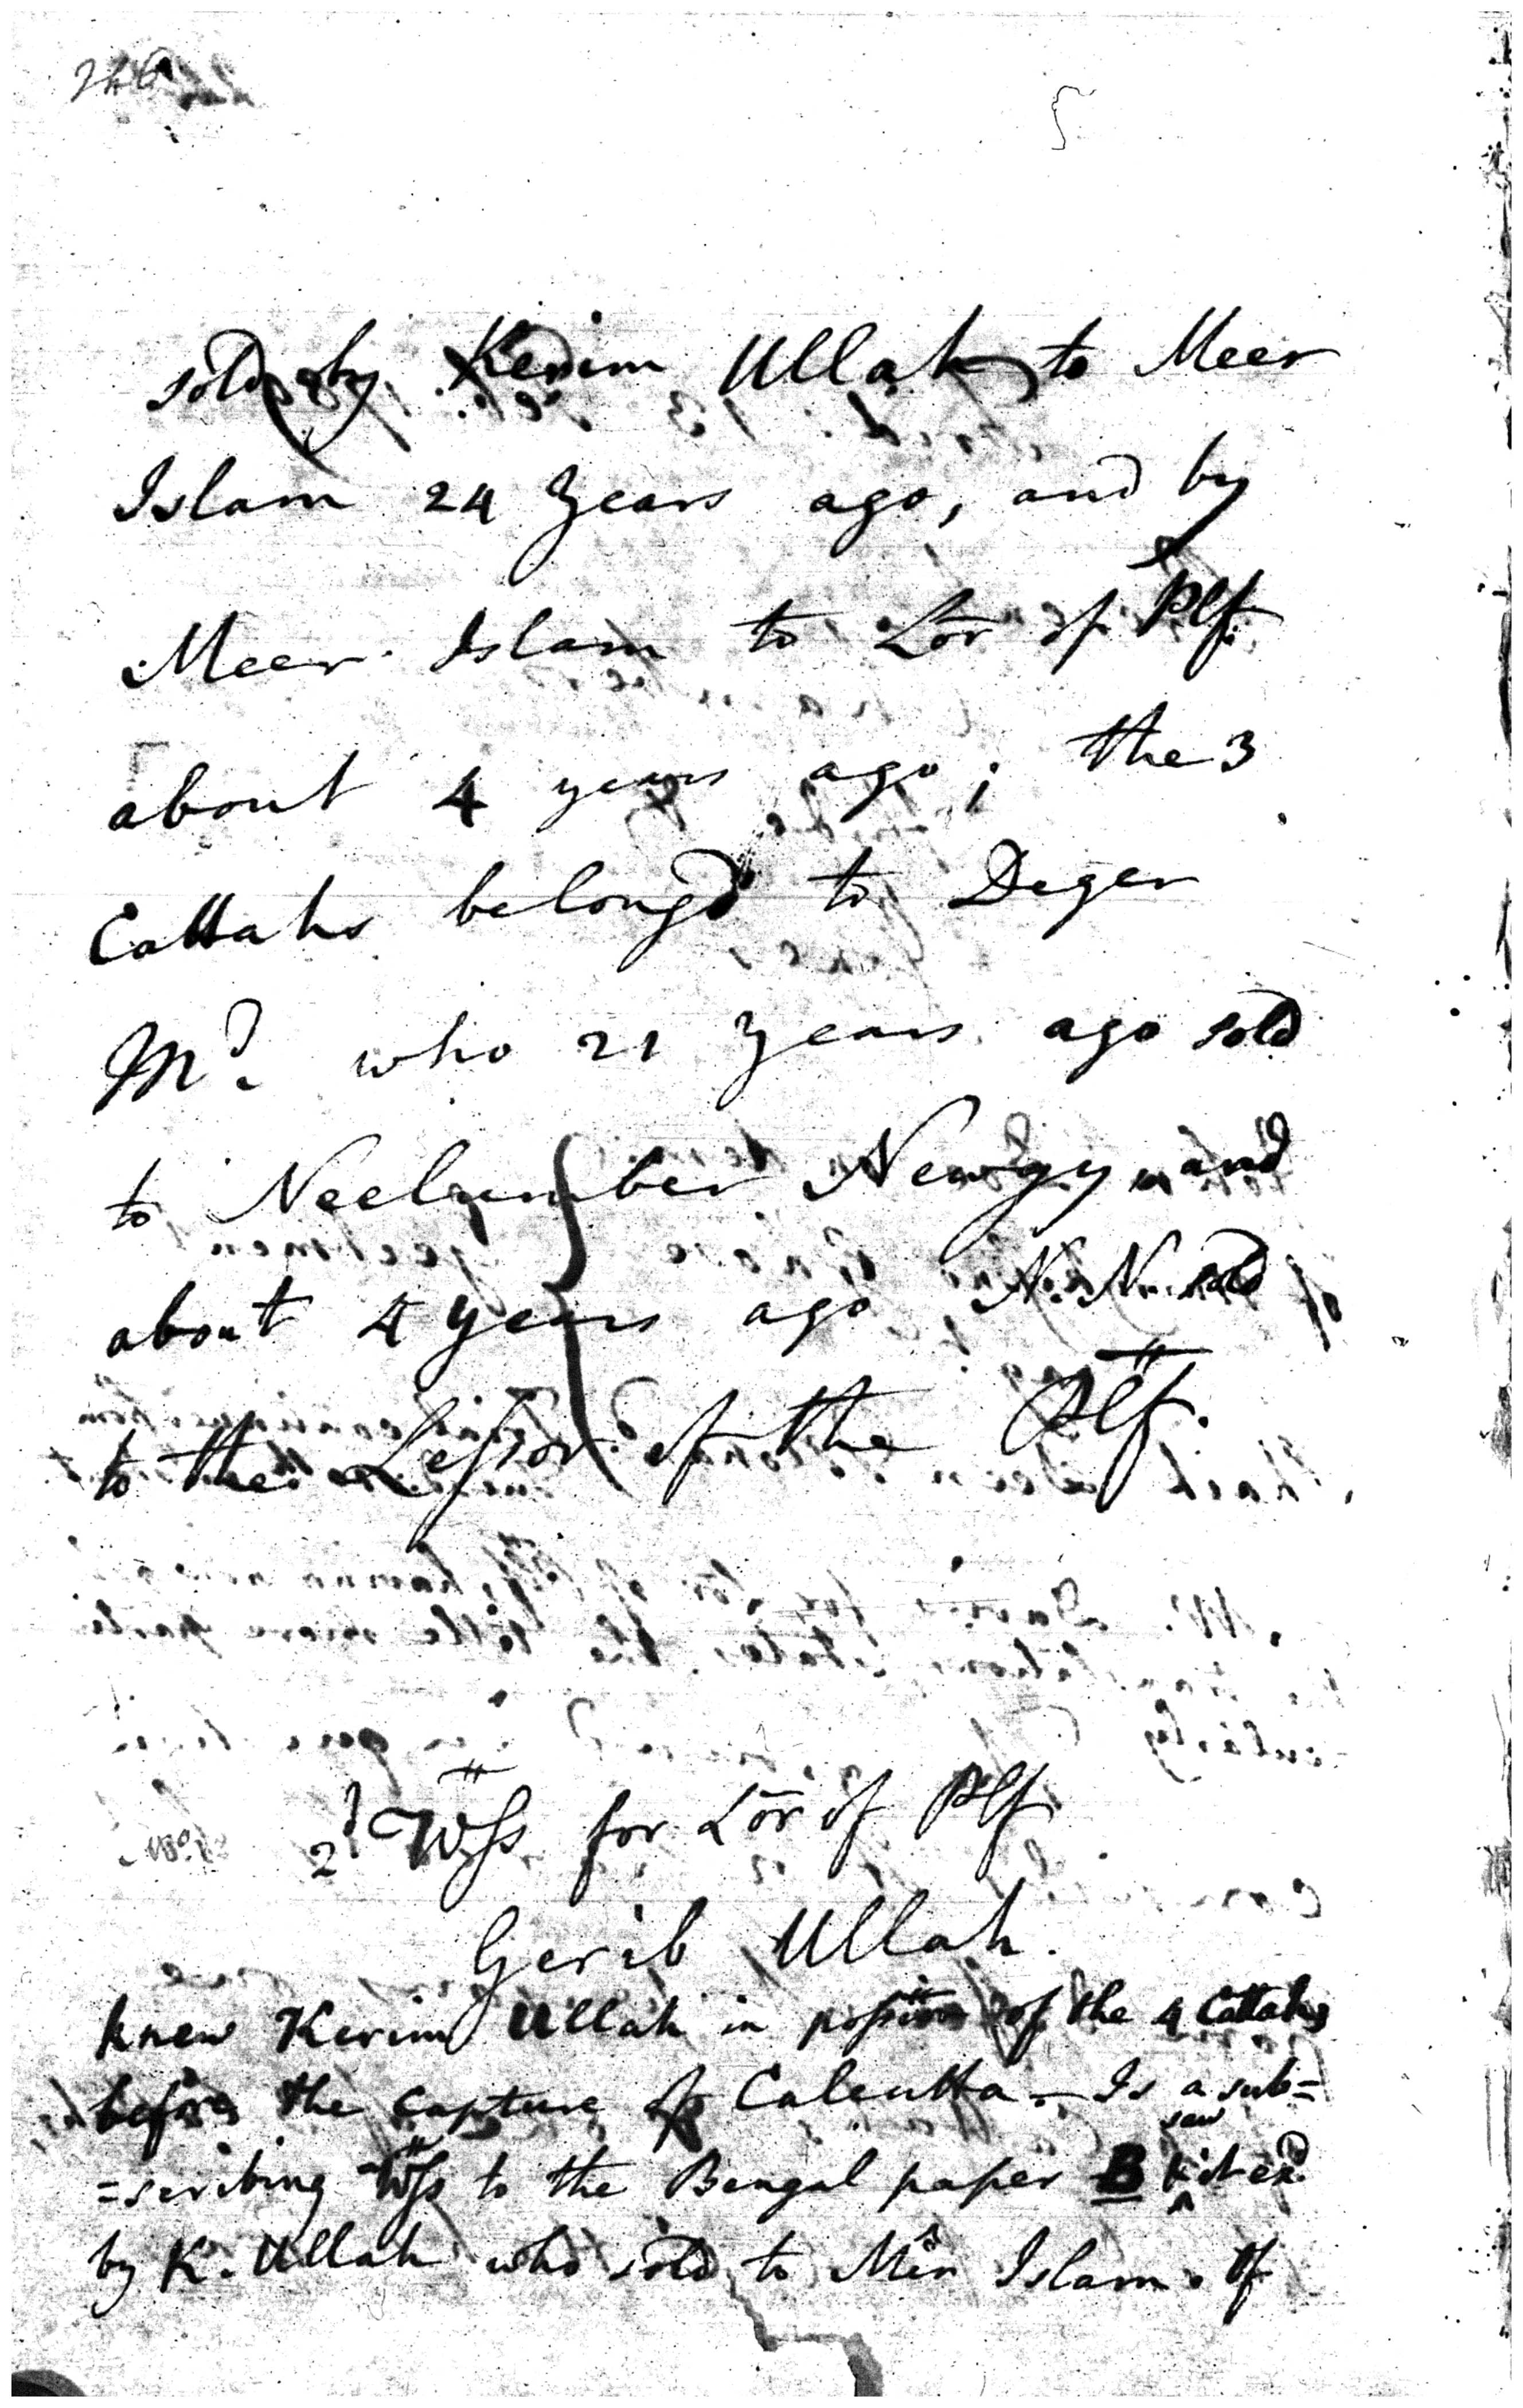 246
sold by Kerim Ullah to Meer
Islam 24 Years ago, and by
Meer Islam to Lōr of Plf.
about 4 years ago; the 3
Cattahs belongd to Deger
Md. who 21 Years ago sold
to Neelumber Newgy, and
about 4 years ago N. N. sold
to the Lessor of the Plf.
2d Wss for Lōr of Plf
Gerib Ullah.
knew Kerim Ullah in possion of the 4 Cattahs
before the capture of Calcutta – Is a sub=
=scribing Wss to the Bengal paper B & saw it exd.
by K. Ullah who sold to Mēr Islam. Of